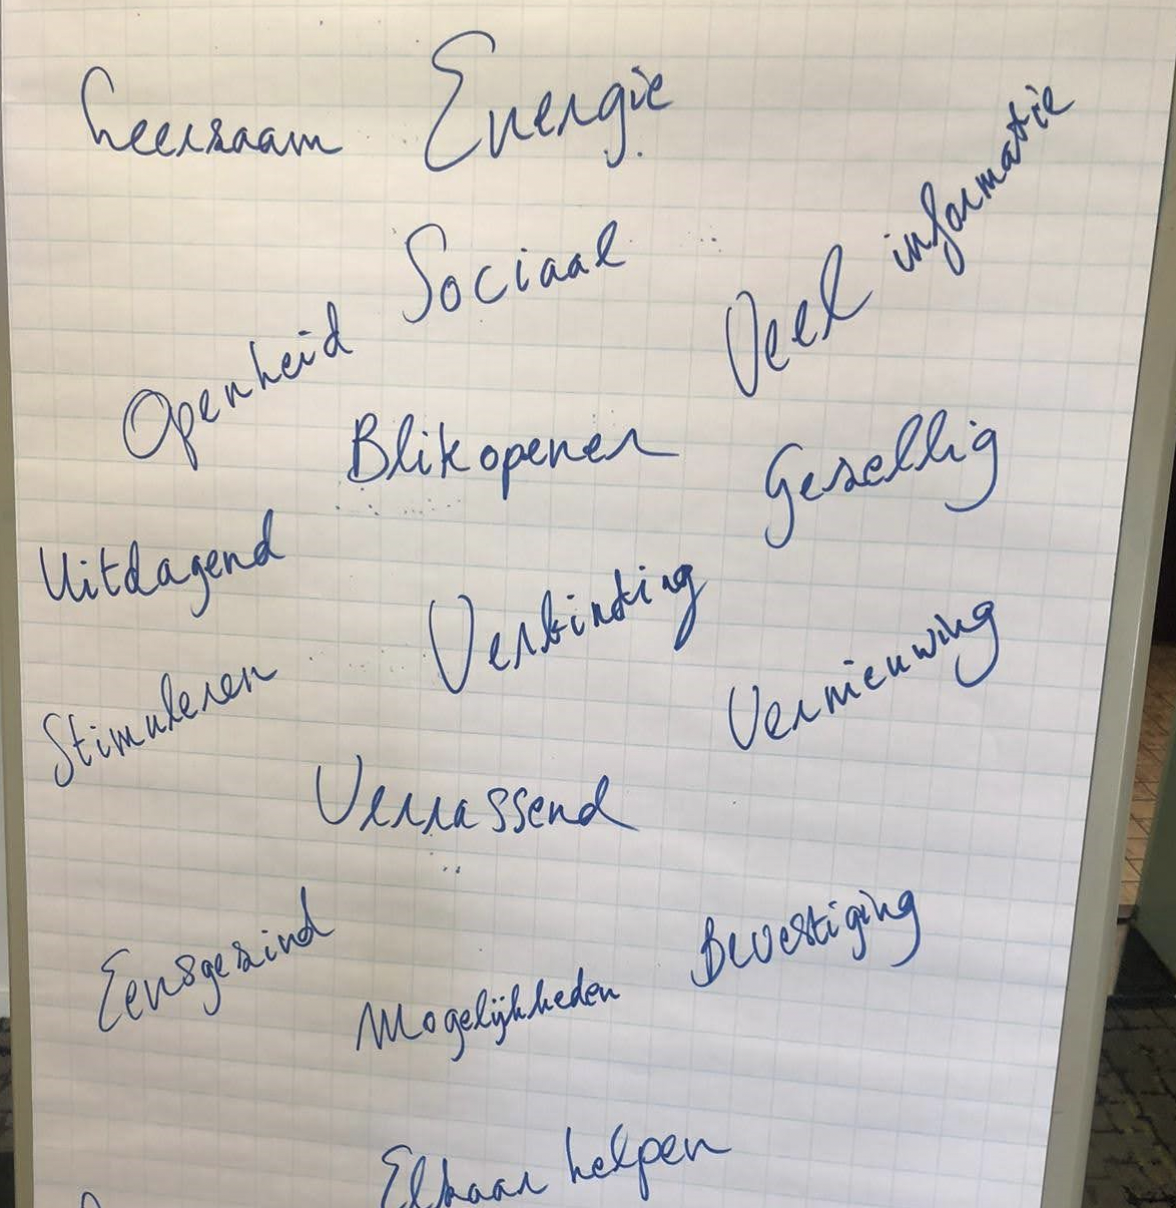 Leerzaam
Energie
Sociaal
Veel informatie
Openheid
Blikopener
Gezellig
Uitdagend
Verbinding
Stimuleren
Vernieuwing
Verrassend
Eensgezind
Mogelijkheden
Bevestiging
Elkaar helpen